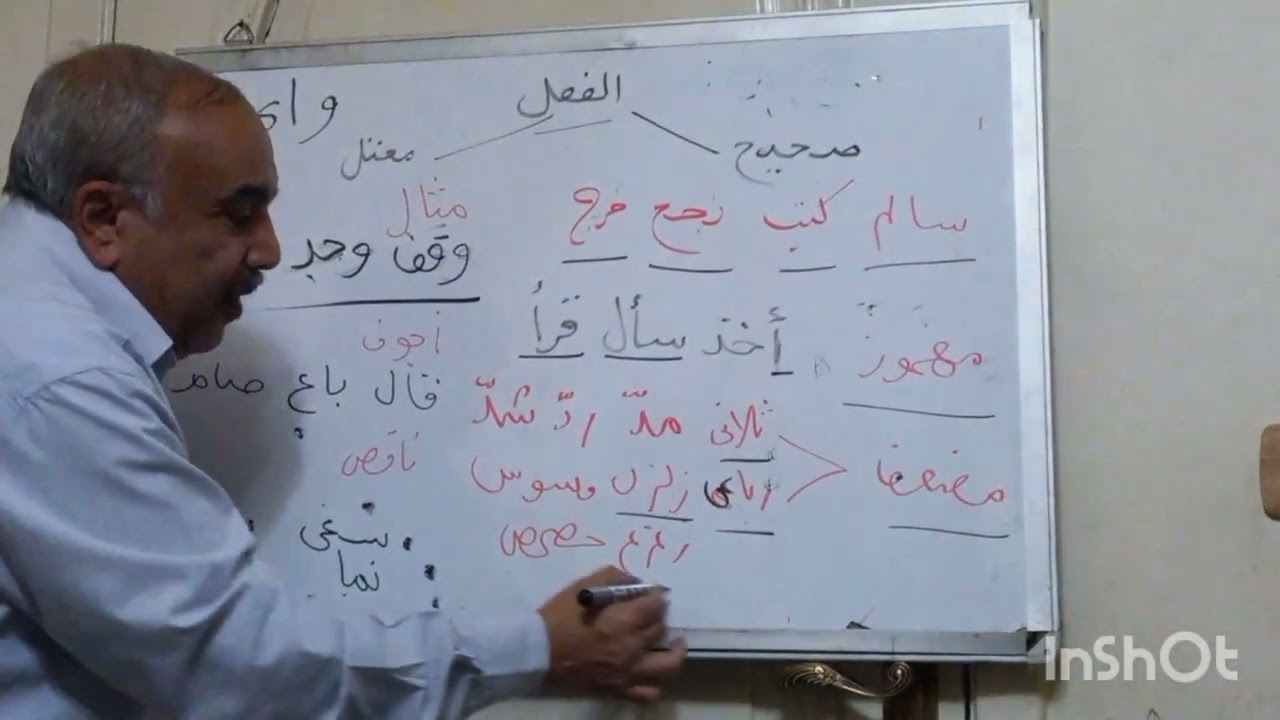 الفعل
صحيح
معتل
سالم كتب نجح خرج
مهموز أخذ سأل قرأ
مضعف
ثلاثي مدّ ردّ شدّ
رباعي زلزل وسوس
حصحص
مثال
وقف وجد
أجوف
قال باع صام
ناقص
InShOt